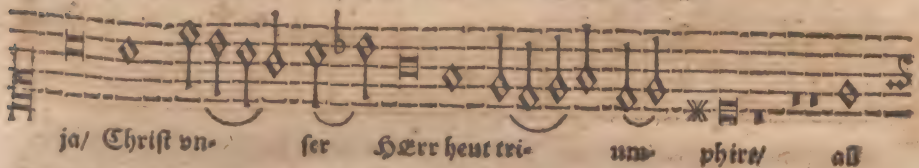 ja/ Christ vn- ser HErr heut tri- um- phirt/ all